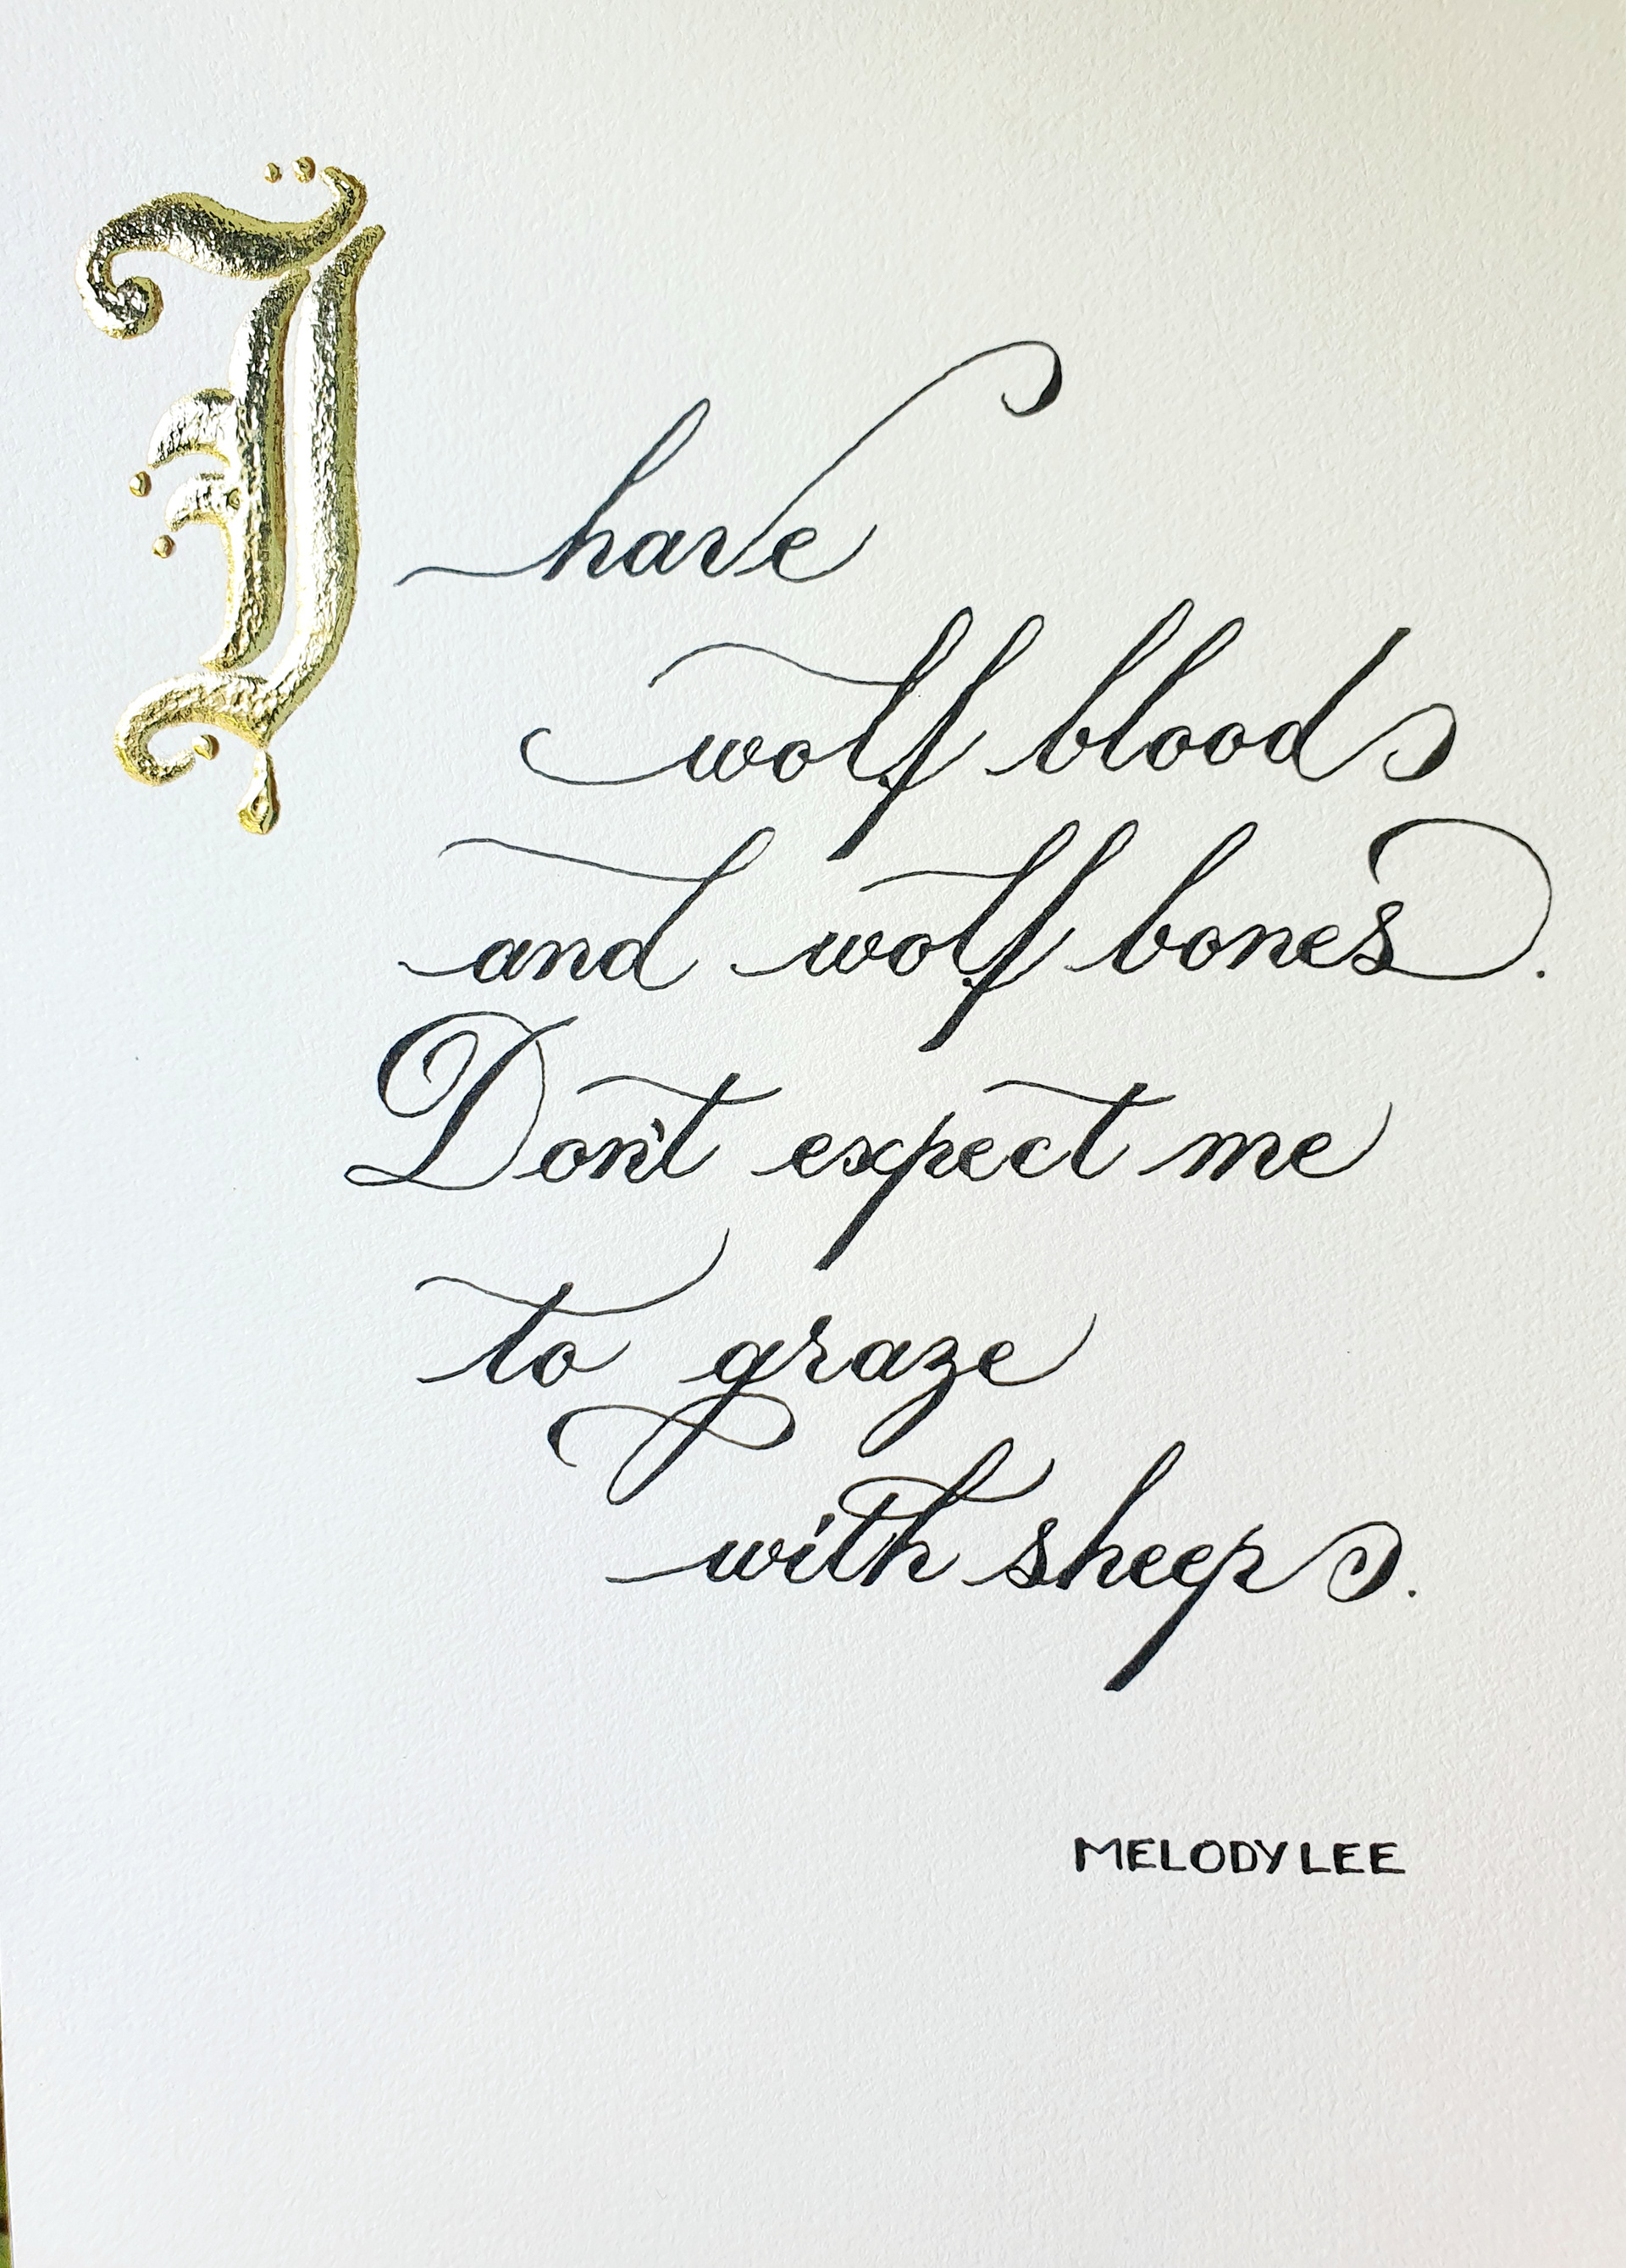 I have
wolf blood
and wolf bones.
Don't expect me
to graze
with sheep.
MELODY LEE